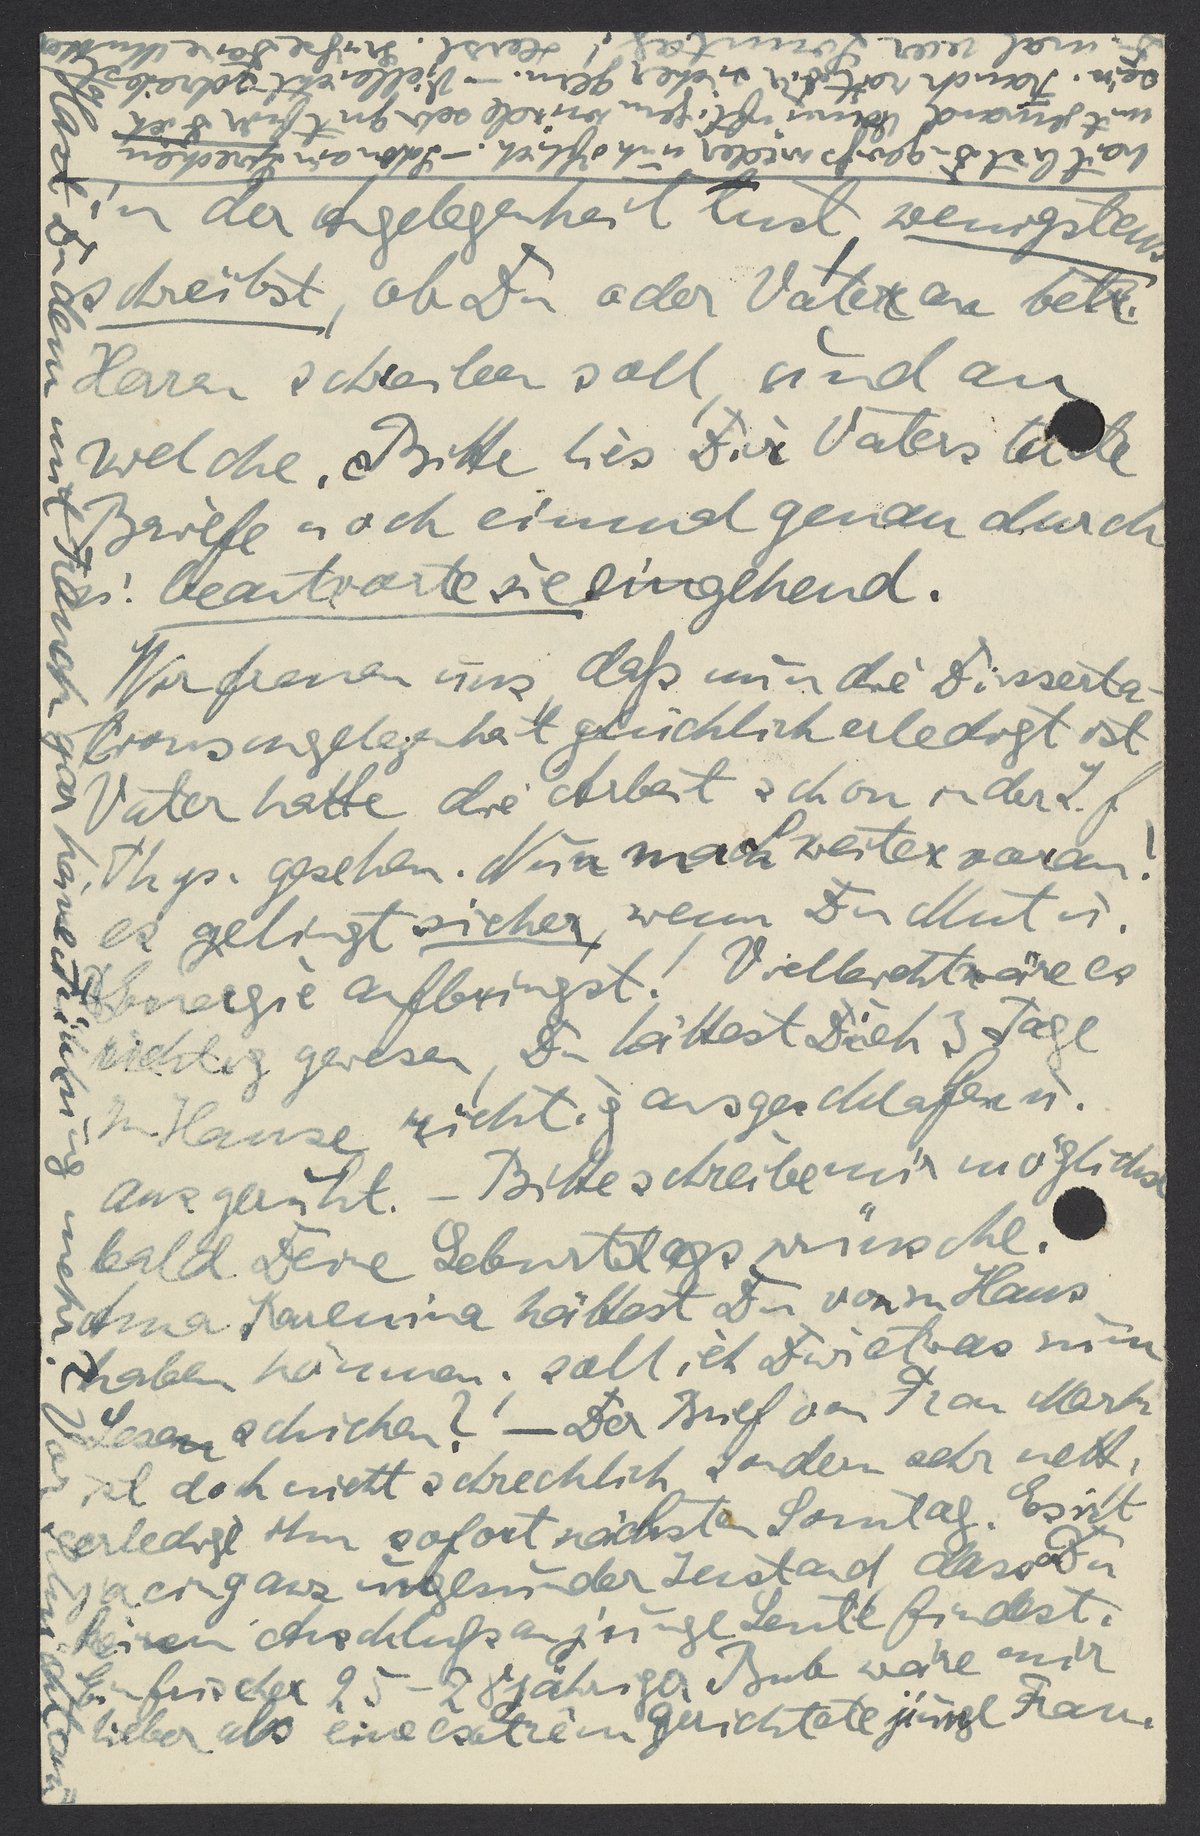 in der Angelegenheit tust, wenigstens
schreibst, ob Du oder Vater an betr.
Herren schreiben soll, und an
welche. Bitte lies Dir Vaters letzte
Briefe noch einmal genau durch
u. beantworte sie eingehend.
Wir freuen uns, daß nun die Disserta-
tionsangelegenheit glücklich erledigt ist,
Vater hatte die Arbeit schon in der Z. f.
Phys. gesehen. Nun mach weiter voran!
es gelingt sicher, wenn Du Mut u.
Energie aufbringst! Vielleicht wäre es
richtig gewesen, Du hättest Dich 3 Tage
zu Hause richtig ausgeschlafen u.
ausgeruht. – Bitte schreibe mir möglichst
bald Deine Geburtstagswünsche.
Anna Karenina hättest Du von zu Haus
haben können. soll ich Dir etwas zum
Lesen schicken? – Der Brief von Frau
ist doch nicht schrecklich sondern sehr nett,
erledige ihn sofort nächsten Sonntag. Es ist
ja ein ganz ungesunder Zustand, dass Du
keinen Anschluß an junge Leute findest.
Ein frischer 25–28jähriger Bub wäre mir
lieber als eine extrem gerichtete junge Frau.
Hast Du denn mit gar keine Fühlung mehr?
hast Du ganz wieder
mit jemand vernünftigem würde sehr gut für Dich
sein. sicher gern. – Vielleicht schreibst
Du mal zum Sonntag! Herzl. Grüße Deine Mutter